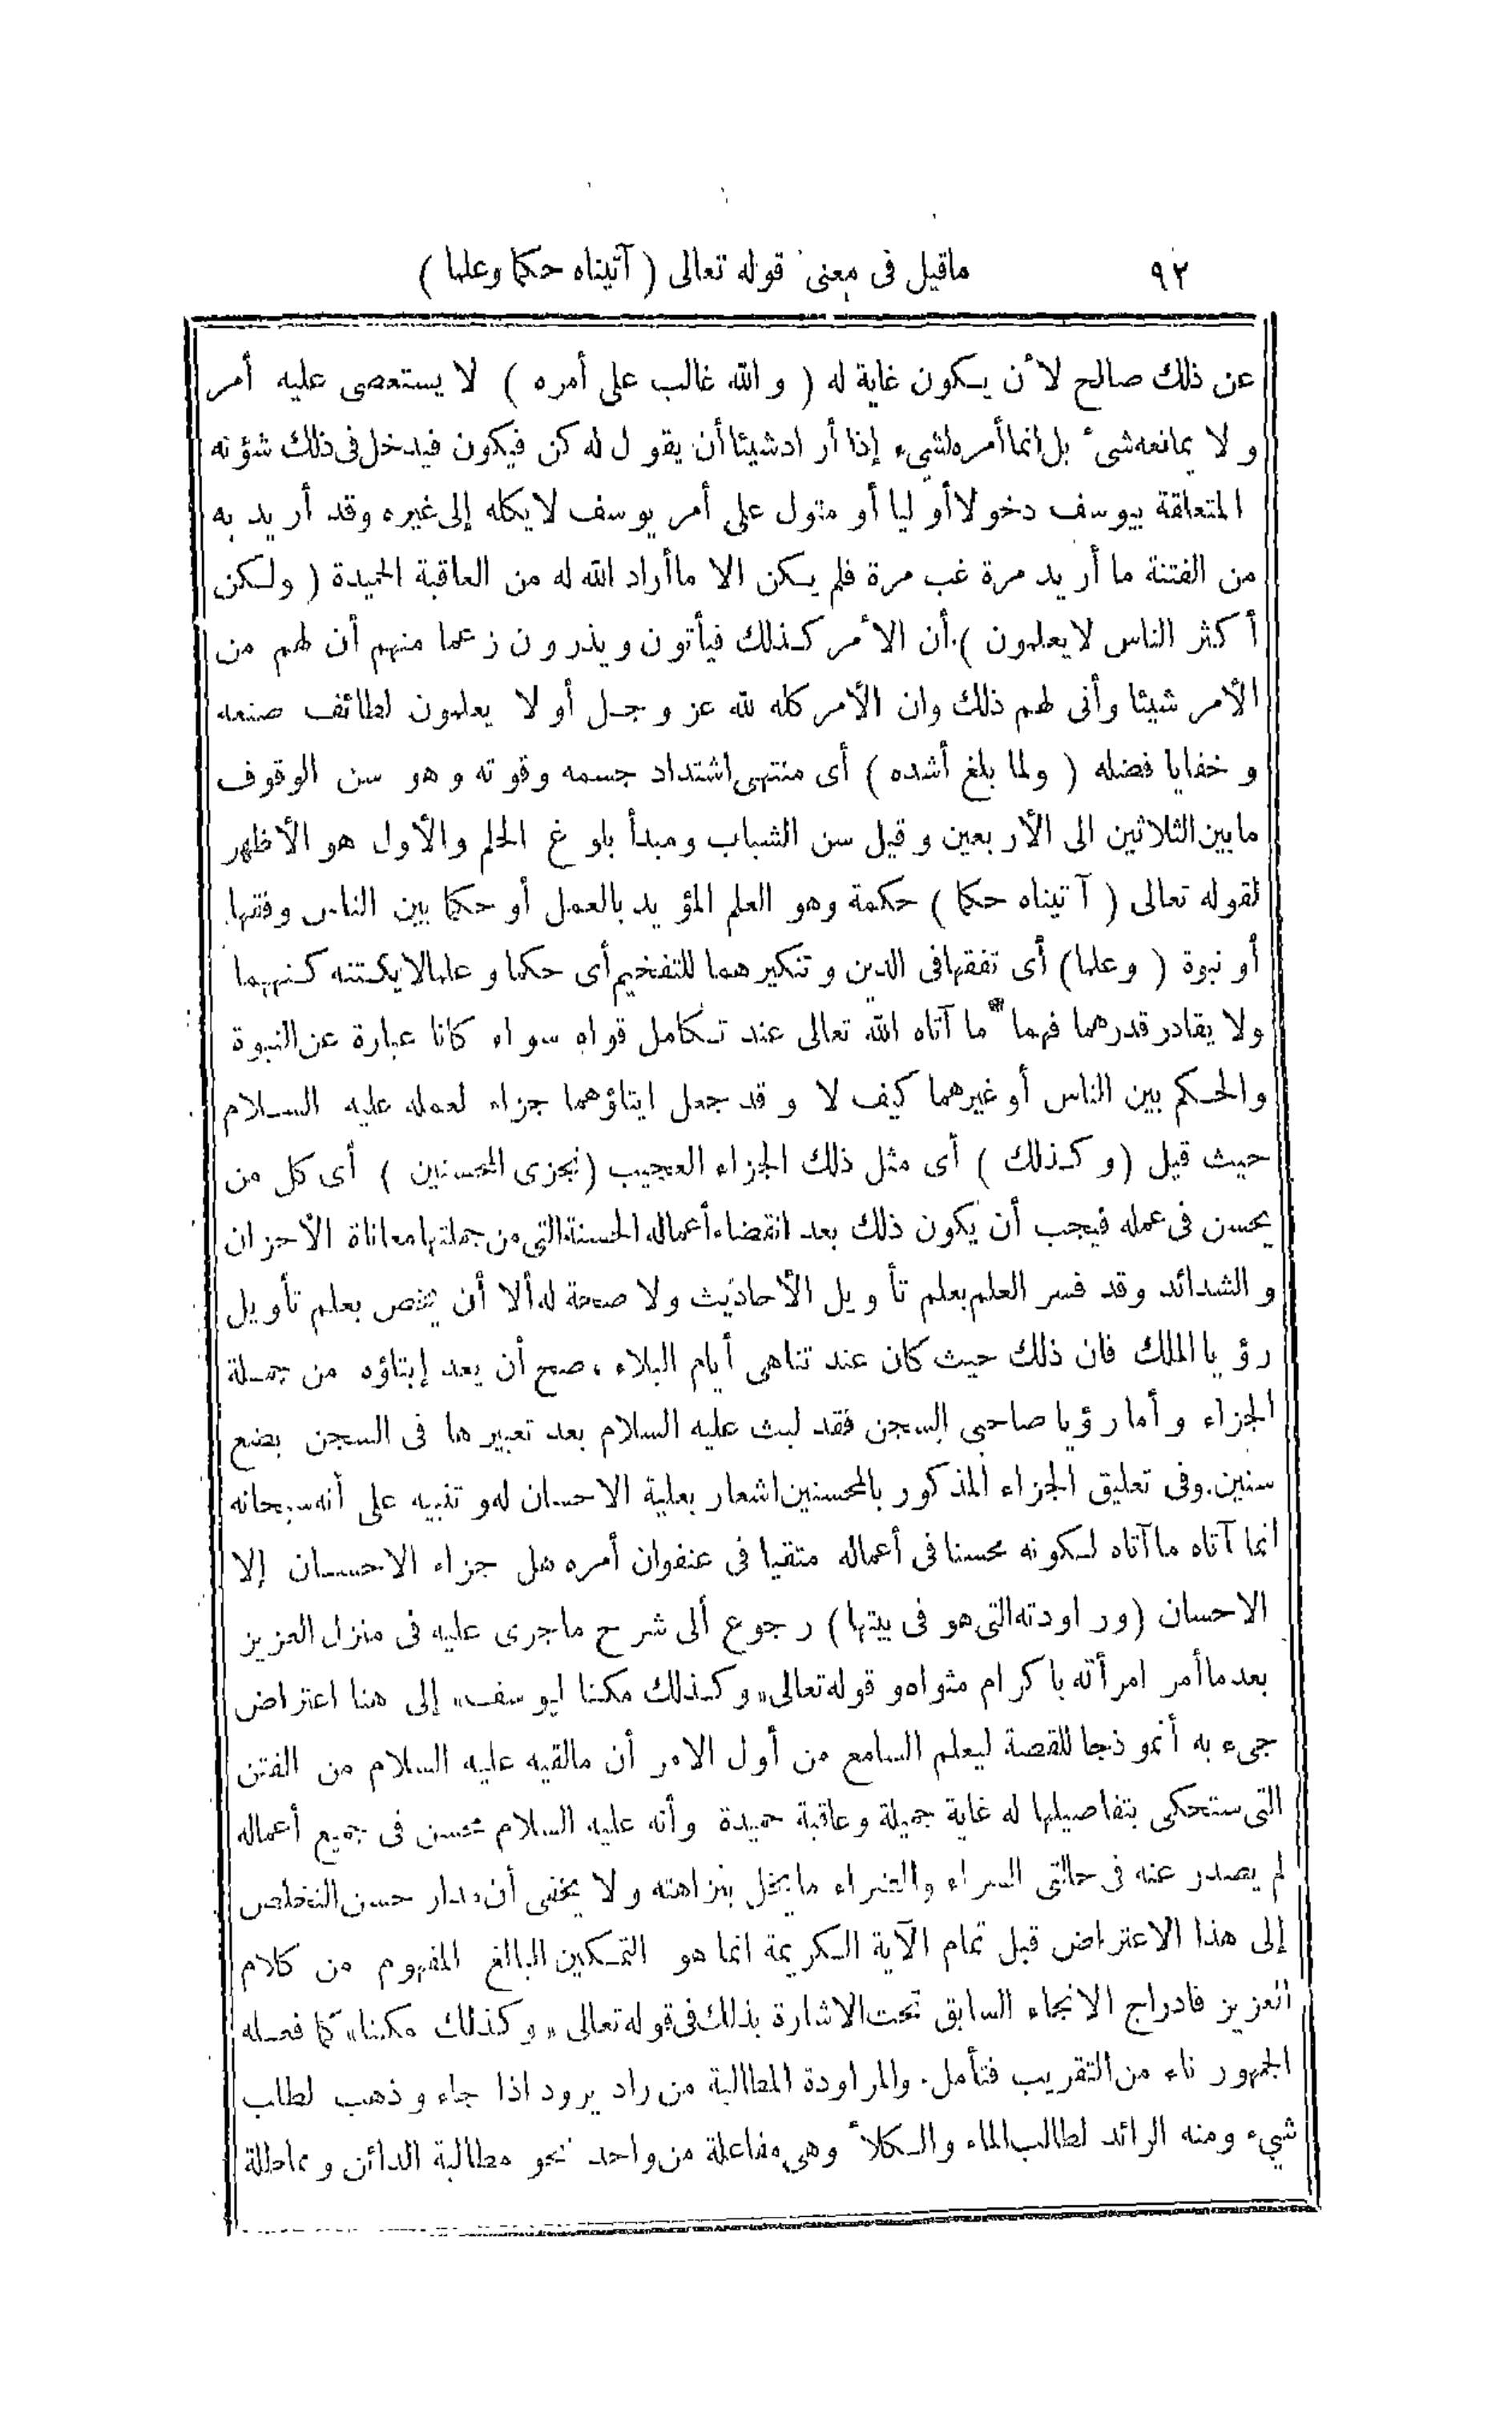 ٩٢ ماقيل فى معنى قوله تعالى ( آتيناه حكما وعلما )
عن ذلك صالح لأن يكون غاية له ( والله غالب على أمره ) لا يستعصى عليه أمر
ولا يمانعه شىء بل انما أمره لشىء إذا أراد شيئا أن يقول له كن فيكون فيدخل فى ذلك شؤنه
المتعلقة بيوسف دخولا أوليا أو متول على أمر يوسف لا يكله إلى غيره وقد أريد به
من الفتنة ما أريد مرة غب مرة فلم يكن الا ما أراد الله له من العاقبة الحميدة ( ولكن
أكثر الناس لا يعلمون ) أن الأمر كذلك فيأتون ويذرون زعما منهم أن لهم من
الأمر شيئا وأنى لهم ذلك وان الأمر كله لله عز وجل أو لا يعلمون لطائف صنعه
وخفايا فضله ( ولما بلغ أشده ) أى منتهى اشتداد جسمه وقوته وهو سن الوقوف
ما بين الثلاثين الى الأربعين وقيل سن الشباب ومبدأ بلوغ الحلم والأول هو الأظهر
لقوله تعالى ( آتيناه حكما ) حكمة وهو العلم المؤيد بالعمل أو حكما بين الناس وفقها
أو نبوة ( وعلما ) أى تفقها فى الدين وتنكيرهما للتفخيم أى حكما وعلما لا يكتنه كنههما
ولا يقادر قدرهما فهما ما آتاه الله تعالى عند تكامل قواه سواء كانا عبارة عن النبوة
والحكم بين الناس أو غيرهما كيف لا وقد جعل ايتاؤهما جزاء لعمله عليه السلام
حيث قيل ( وكذلك ) أى مثل ذلك الجزاء العجيب ( نجزى المحسنين ) أى كل من
يحسن فى عمله فيجب أن يكون ذلك بعد انقضاء أعماله الحسنة التى من جملتها معاناة الأحزان
والشدائد وقد فسر العلم بعلم تأويل الأحاديث ولا صحة له ألا أن يخص بعلم تأويل
رؤيا الملك فان ذلك حيث كان عند تناهى أيام البلاء ، صح أن يعد إيتاؤه من جملة
الجزاء وأما رؤيا صاحبى السجن فقد لبث عليه السلام بعد تعبيرها فى السجن بضع
سنين . وفى تعليق الجزاء المذكور بالمحسنين اشعار بعلية الاحسان له وتنبيه على أنه سبحانه
انما آتاه ما آتاه لكونه محسنا فى أعماله متقيا فى عنفوان أمره هل جزاء الاحسان إلا
الاحسان ( وراودته التى هو فى بيتها ) رجوع ألى شرح ما جرى عليه فى منزل العزيز
بعد ما أمر امرأته باكرام مثواه وقوله تعالى « وكذلك مكنا ليوسف » إلى هنا اعتراض
جىء به أنموذجا للقصة ليعلم السامع من أول الامر أن مالقيه عليه السلام من الفتن
التى ستحكى بتفاصيلها له غاية جميلة وعاقبة حميدة وأنه عليه السلام محسن فى جميع أعماله
لم يصدر عنه فى حالتى السراء والضراء ما يخل بنزاهته ولا يخفى أن مدار حسن التخلص
إلى هذا الاعتراض قبل تمام الآية الكريمة انما هو التمكين البالغ المفهوم من كلام
العزيز فادراج الانجاء السابق تحت الاشارة بذلك فى قوله تعالى « وكذلك مكنا » كما فعله
الجمهور ناء من التقريب فتأمل . والمراودة المطالبة من راد يرود اذا جاء وذهب لطلب
شىء ومنه الرائد لطالب الماء والكلأ وهى مفاعلة من واحد نحو مطالبة الدائن ومماطلة